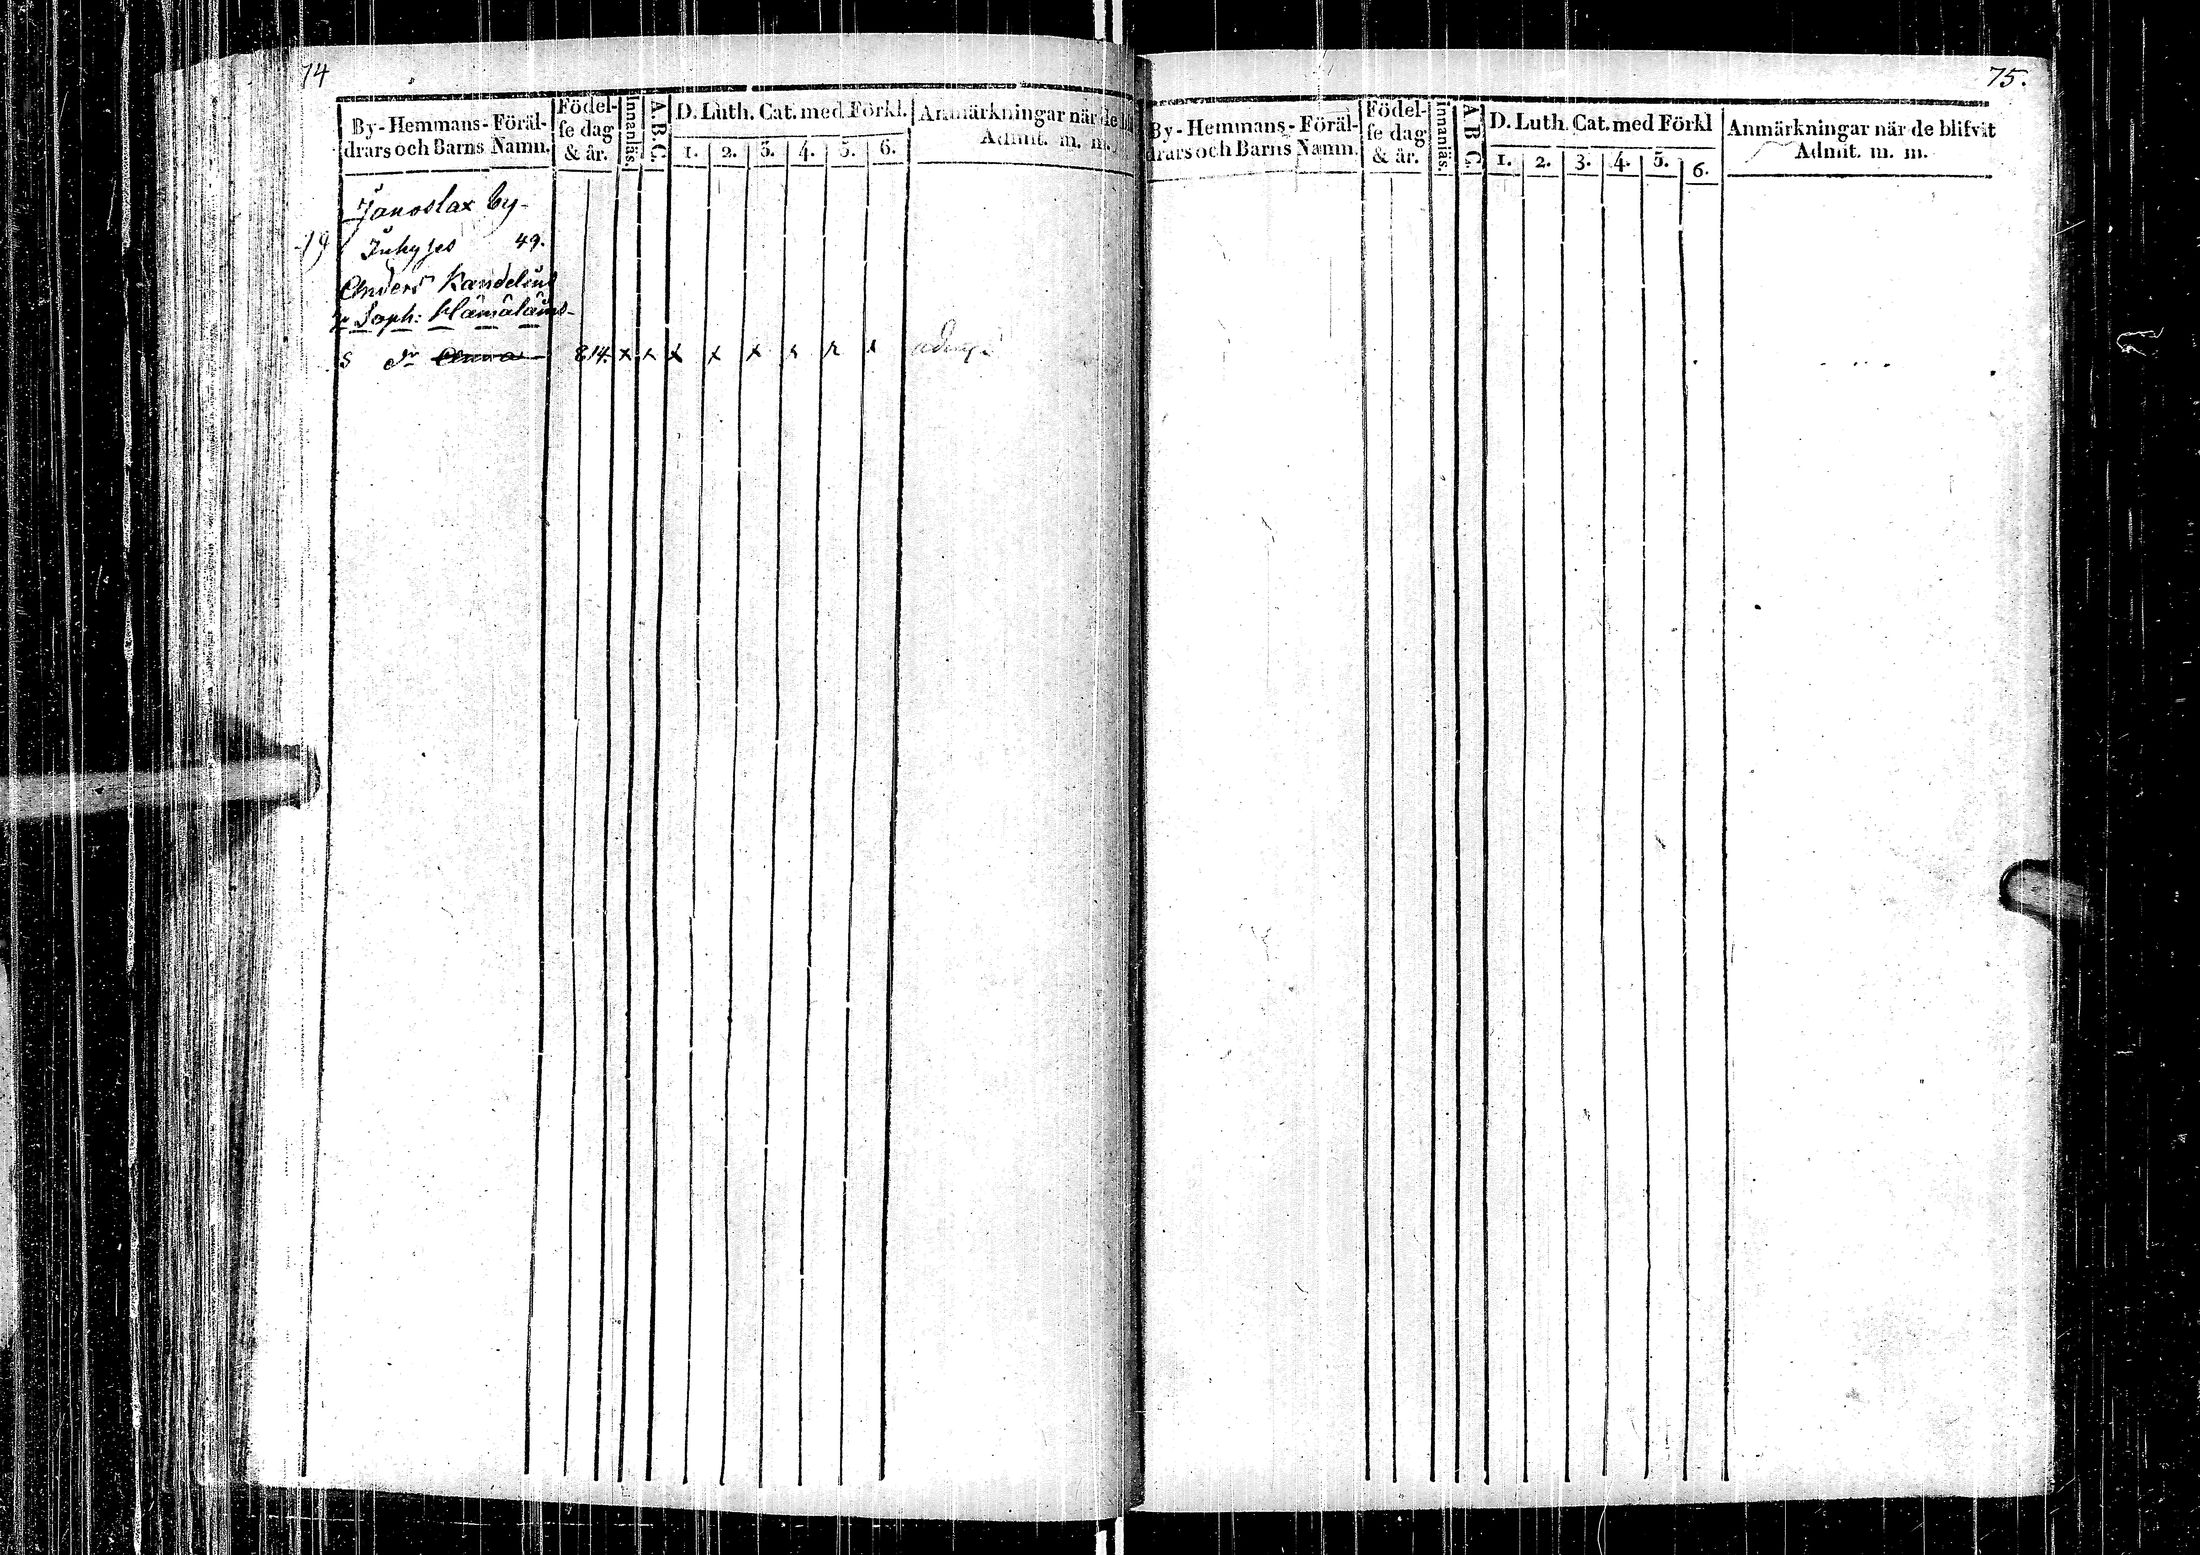 74
By-Hemmans-Föräl-
drars och Barns Namn.
Födel-
se dag
& år.
Innanläs.
A.B.C.
D. Luth. Cat. med Förkl.
1. 2. 3. 4. 5. 6.
Anmärkningar när de
Admit. m. m.
by
49.
Anders Kandelin
Soph: Hämäläin
S dr Anna 814. x x x x x x x x
75.
By-Hemmans-Föräl-
drars och Barns Namn.
Födel-
se dag
& år.
Innanläs.
A B C.
D. Luth. Cat. med Förkl
1. 2. 3. 4. 5. 6.
Anmärkningar när de blifvit
Admit. m. m.